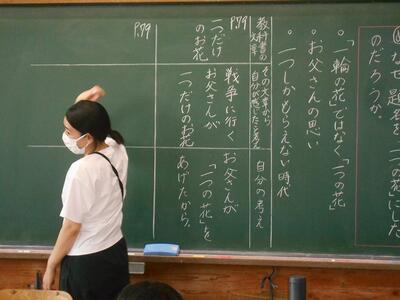 なぜ題名を「一つの花」にした
のだろうか。
・「一輪の花」ではなく「一つの花」
・お父さんの思い
・一つしかもらえない時代
教科書の
文章
その文章から
自分が感じたこと
自分の考え
P.79
一つだけ
のお花
戦争に行く
お父さんが
一つだけのお花
お父さんが
「一つの花」を
あげたから。
P.79